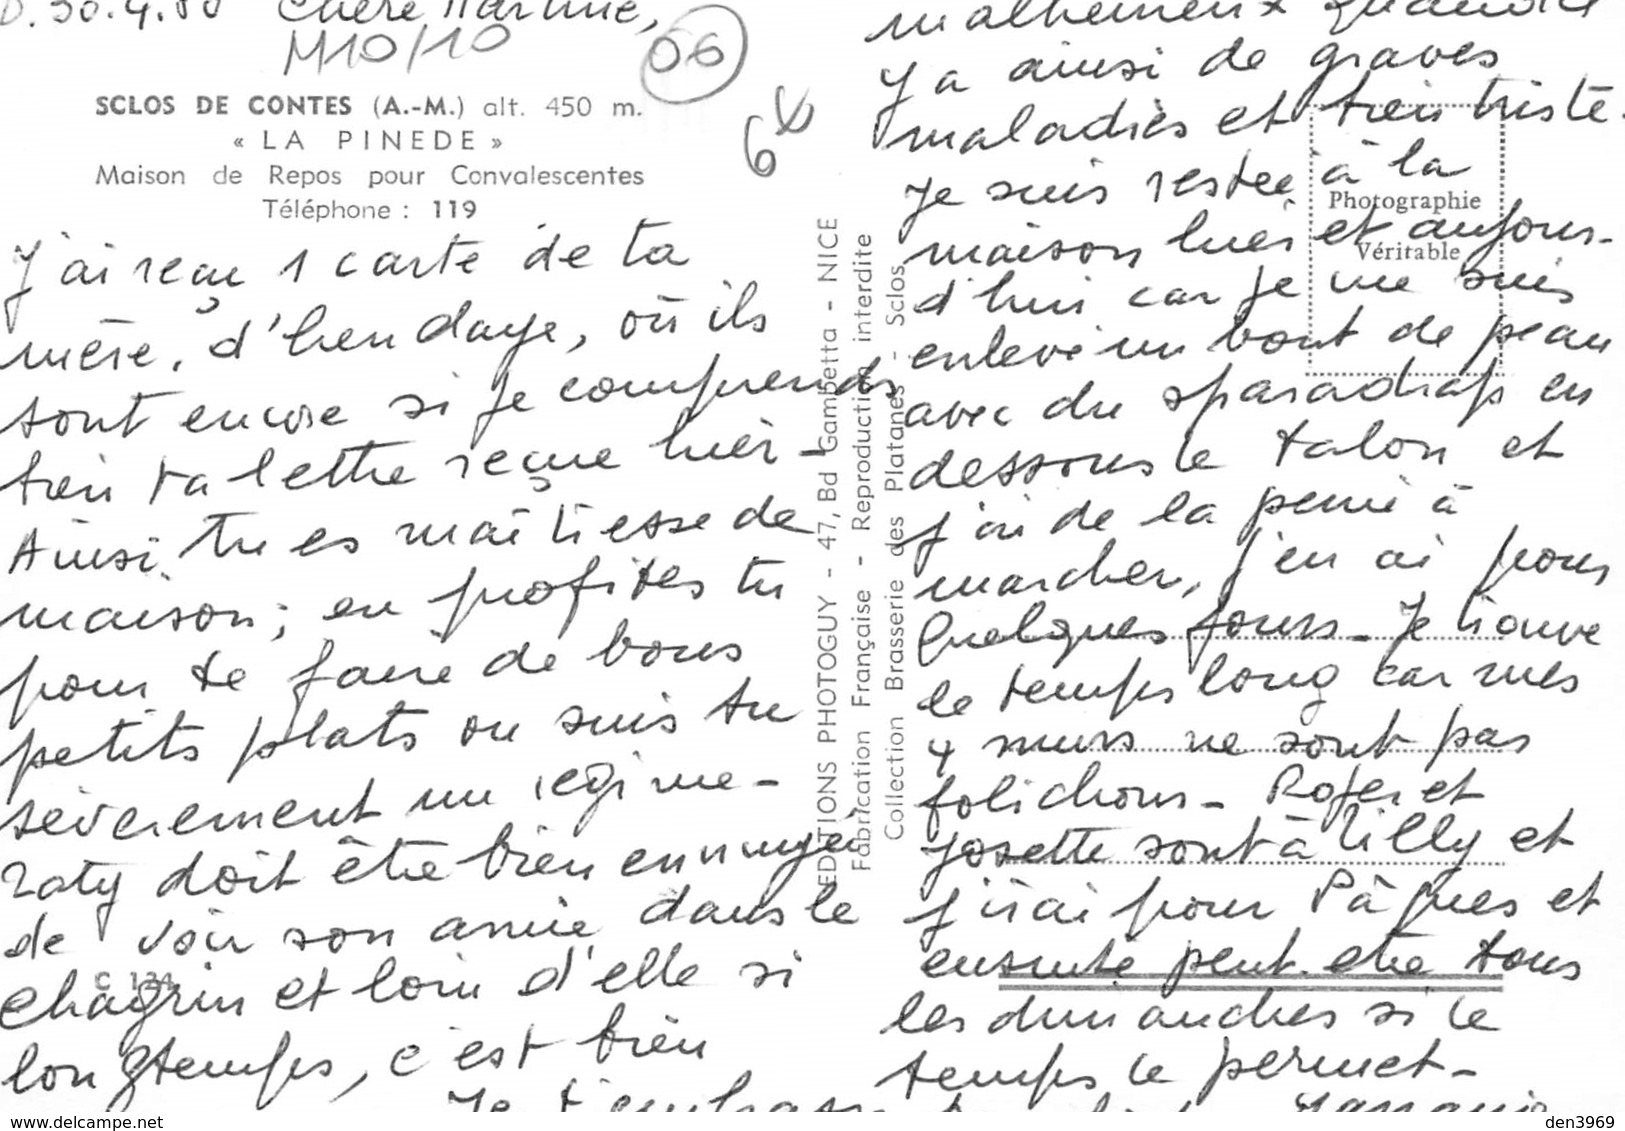 D. 30.4.80 Chère Martine,
M10/10
06
6x
SCLOS DE CONTES (A.-M.) alt. 450 m.
« LA PINEDE »
Maison de Repos pour Convalescentes
Téléphone : 119
J'ai reçu 1 carte de ta
mère, d'hendaye, où ils
sont encore si je comprends
bien ta lettre reçue hier -
Ainsi tu es maîtresse de
maison ; en profites tu
pour te faire de bons
petits plats ou suis tu
sévèrement un régime -
Katy doit être bien ennuyée
de voir son amie dans le
chagrin et loin d'elle si
longtemps, c'est bien
C 134
EDITIONS PHOTOGUY - 47, Bd Gambetta - NICE
Fabrication Française - Reproduction interdite
Collection Brasserie des Platanes - Sclos
Photographie
Véritable
malheureux quand il
y a ainsi de graves
maladies et bien triste.
Je suis restée à la
maison hier et aujour-
d'hui car je me suis
enlevé un bout de peau
avec du sparadrap en
dessous le talon et
j'ai de la peine à
marcher, j'en ai pour
quelques jours - Je trouve
le temps long car mes
4 murs ne sont pas
folichons - Roger et
Josette sont à Tilly et
j'irai pour Pâques et
ensuite peut-être tous
les dimanches si le
temps le permet -
Je t'embrasse
www.delcampe.net
den3969